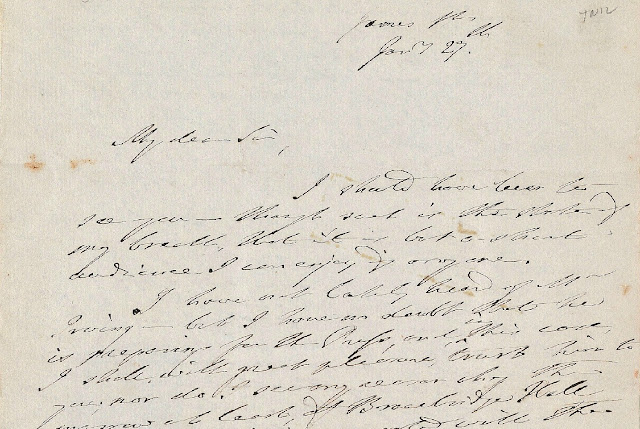 James Pl.
Jany 27th.
My dear Sir,
I should have been to
see you — though such is the state of
my breath, that it is but a short
audience I can enjoy, if any one.
I have not lately heard of Mr
Irving — but I have no doubt that he
is preparing for the Press, and in this case,
I shall, with great pleasure, trust him to
you, nor do I see any reason why the
at least, of Bracebridge Hall
with the